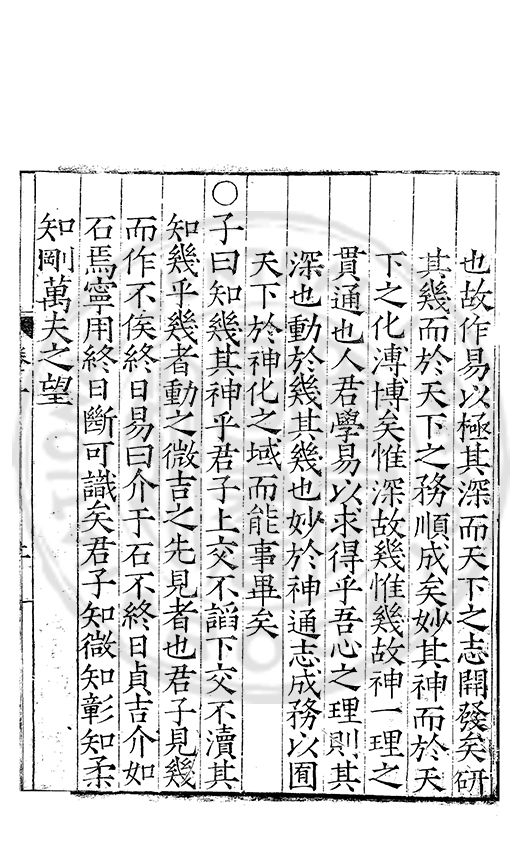 也故作易以極其深而天下之志開發矣研
其幾而於天下之務順成矣妙其神而於天
下之化溥博矣惟深故幾惟幾故神一理之
貫通也人君學易以求得乎吾心之理則其
深也動於幾其幾也妙於神通志成務以囿
天下於神化之域而能事畢矣
○子曰知幾其神乎君子上交不謟下交不瀆其
知幾乎幾者動之微吉之先見者也君子見幾
而作不俟終日易曰介于石不終日貞吉介如
石焉寧用終日斷可識矣君子知微知彰知柔
知剛萬夫之望